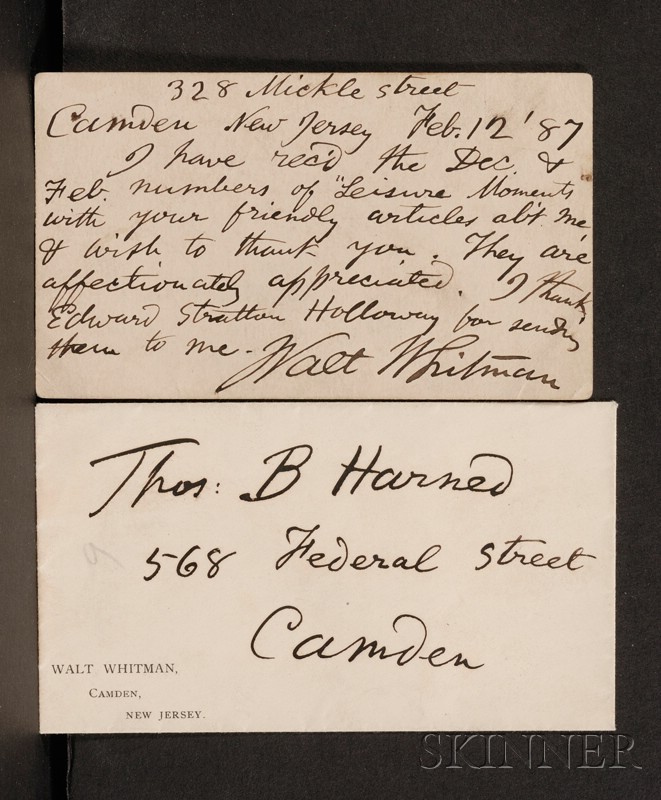 328 Mickle street
Camden New Jersey Feb. 12 '87
I have rec'd the Dec &
Feb. numbers of "Leisure Moments
with your friendly articles ab't me
& wish to thank you. They are
affectionately appreciated. I thank
Edward Stratton Holloway for sending
them to me - Walt Whitman
Thos: B Harned
568 Federal street
Camden
WALT WHITMAN,
CAMDEN,
NEW JERSEY.
SKINNER